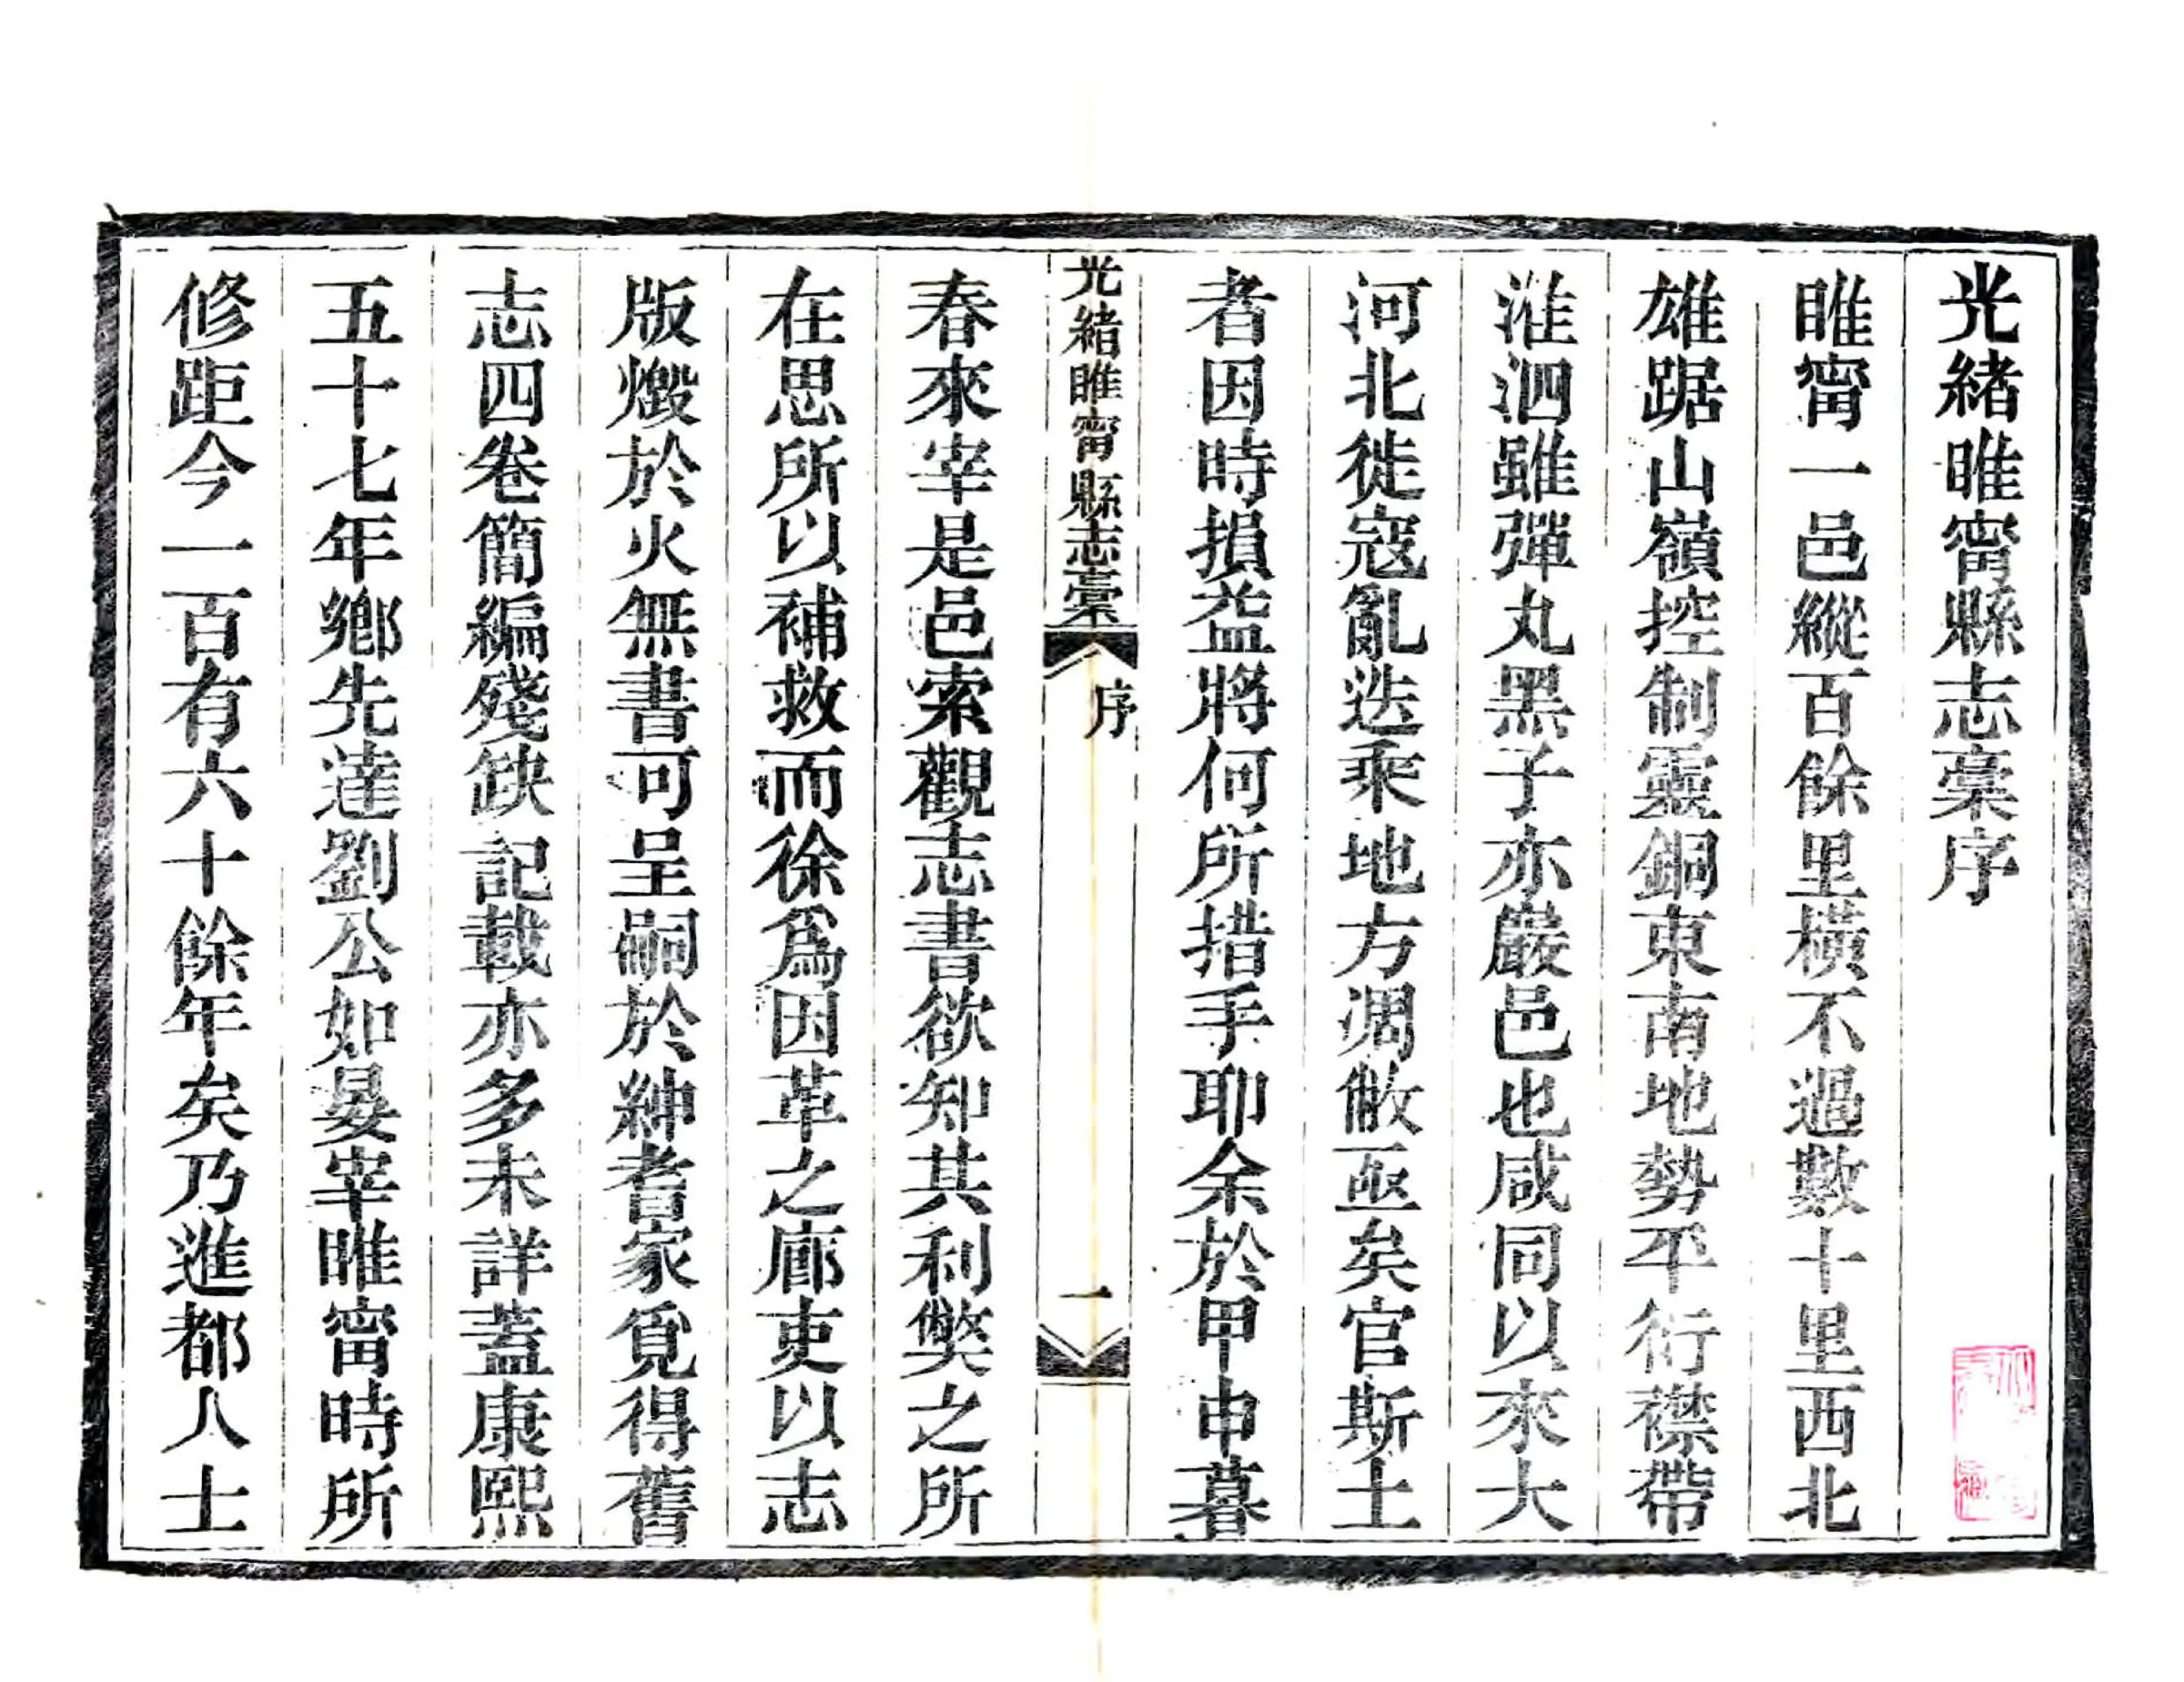 光緒睢甯縣志藁序
睢甯一邑縱百餘里橫不過數十里西北
雄踞山嶺控制靈銅東南地勢平衍襟帶
淮泗雖彈丸黑子亦巖邑也咸同以來大
河北徙寇亂迭乘地方凋敝亟矣官斯土
者因時損益將何所措手耶余於甲申暮
光緒睢甯縣志藁
序
一
春來宰是邑索觀志書欲知其利獘之所
在思所以補救而徐爲因革之廊吏以志
版燬於火無書可呈嗣於紳耆家覓得舊
志四卷簡編殘缺記載亦多未詳蓋康熙
五十七年鄉先達劉公如晏宰睢甯時所
修距今一百有六十餘年矣乃進都人士